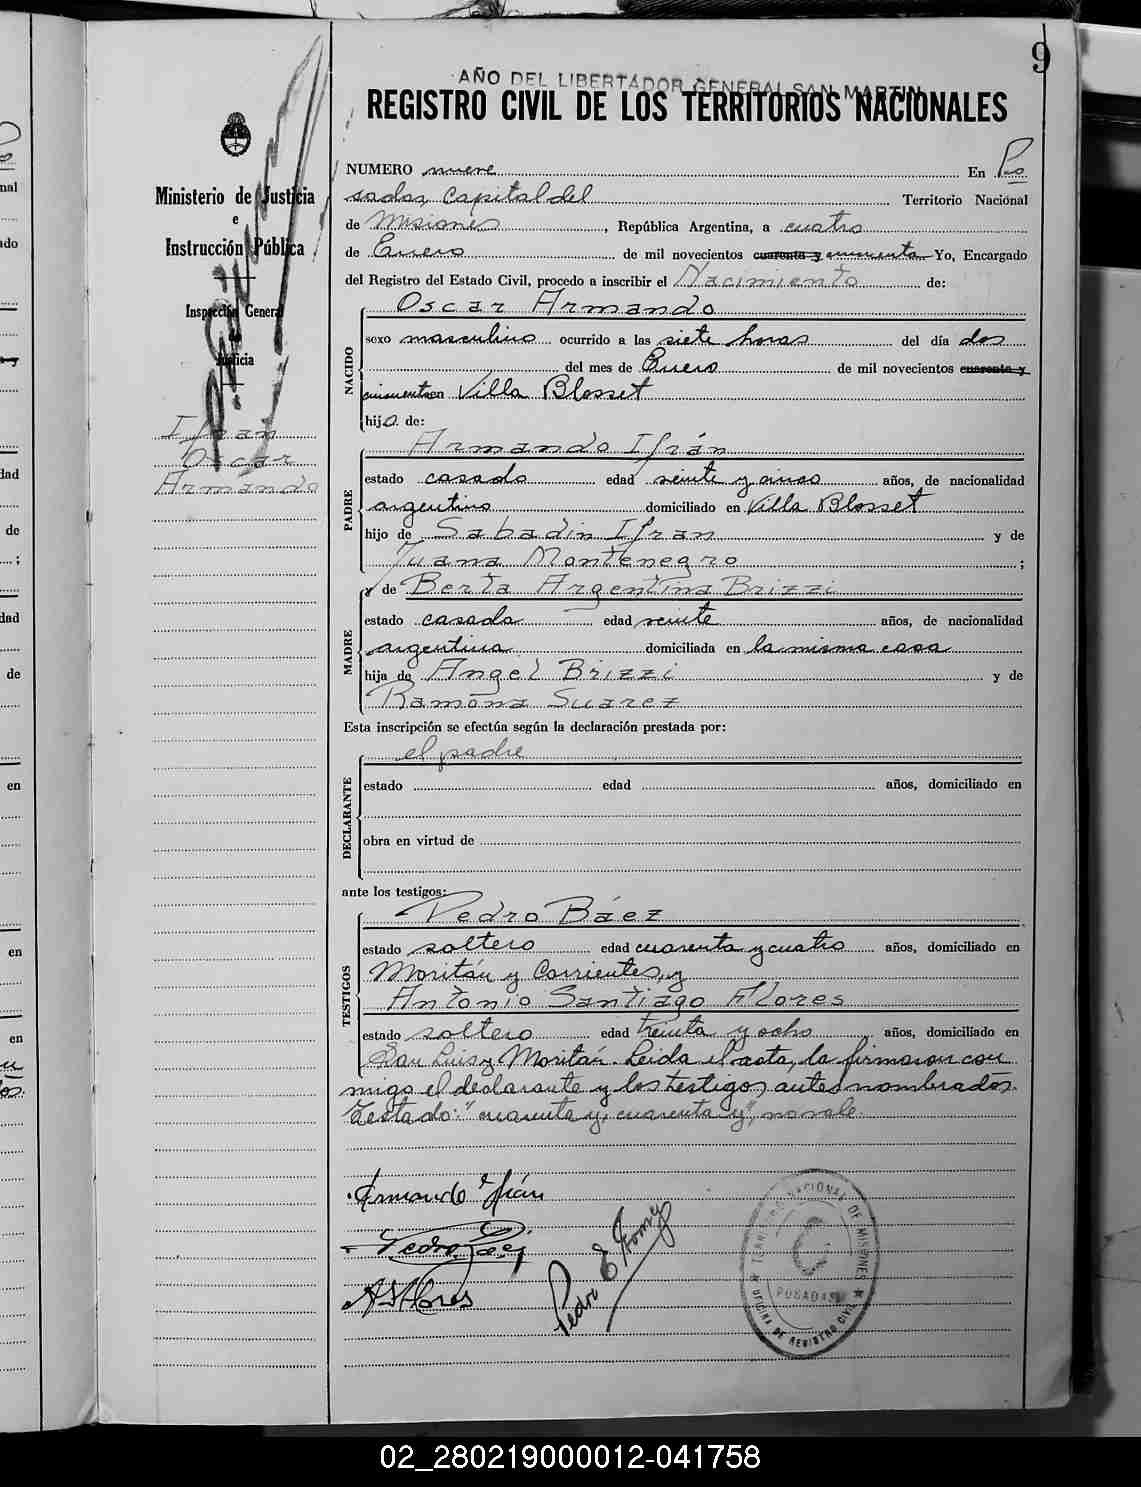 9
AÑO DEL LIBERTADOR GENERAL SAN MARTIN
REGISTRO CIVIL DE LOS TERRITORIOS NACIONALES
Ministerio de Justicia
e
Instrucción Pública
Inspección General
de
Justicia
Ifran
Oscar
Armando
NUMERO nueve En Po
sadas, Capital del Territorio Nacional
de Misiones, República Argentina, a cuatro
de Enero de mil novecientos cuarenta y cincuenta Yo, Encargado
del Registro del Estado Civil, procedo a inscribir el Nacimiento de:
NACIDO
Oscar Armando
sexo masculino ocurrido a las siete horas del día dos
del mes de Enero de mil novecientos cuarenta y
cincuenta en Villa Blosset
hijo de:
PADRE
Armando Ifrán
estado casado edad veinte y cinco años, de nacionalidad
argentino domiciliado en Villa Blosset
hijo de Sabadin Ifran y de
Juana Montenegro ;
MADRE
y de Berta Argentina Brizzi
estado casada edad veinte años, de nacionalidad
argentina domiciliada en la misma casa
hija de Angel Brizzi y de
Ramona Suarez
Esta inscripción se efectúa según la declaración prestada por:
DECLARANTE
el padre
estado edad años, domiciliado en
obra en virtud de
ante los testigos:
TESTIGOS
Pedro Báez
estado soltero edad cuarenta y cuatro años, domiciliado en
Moritán y Corrientes, y
Antonio Santiago Flores
estado soltero edad treinta y ocho años, domiciliado en
San Luis y Moritán. Leida el acta, la firmaron con
migo el declarante y los testigos antes nombrados.
Testado: "cuarenta y, cuarenta y", no vale.
Armando Ifrán
Pedro Báez
A S Flores
Pedro E
TERRITORIO NACIONAL DE MISIONES
POSADAS
OFICINA DE REGISTRO CIVIL
02_280219000012-041758